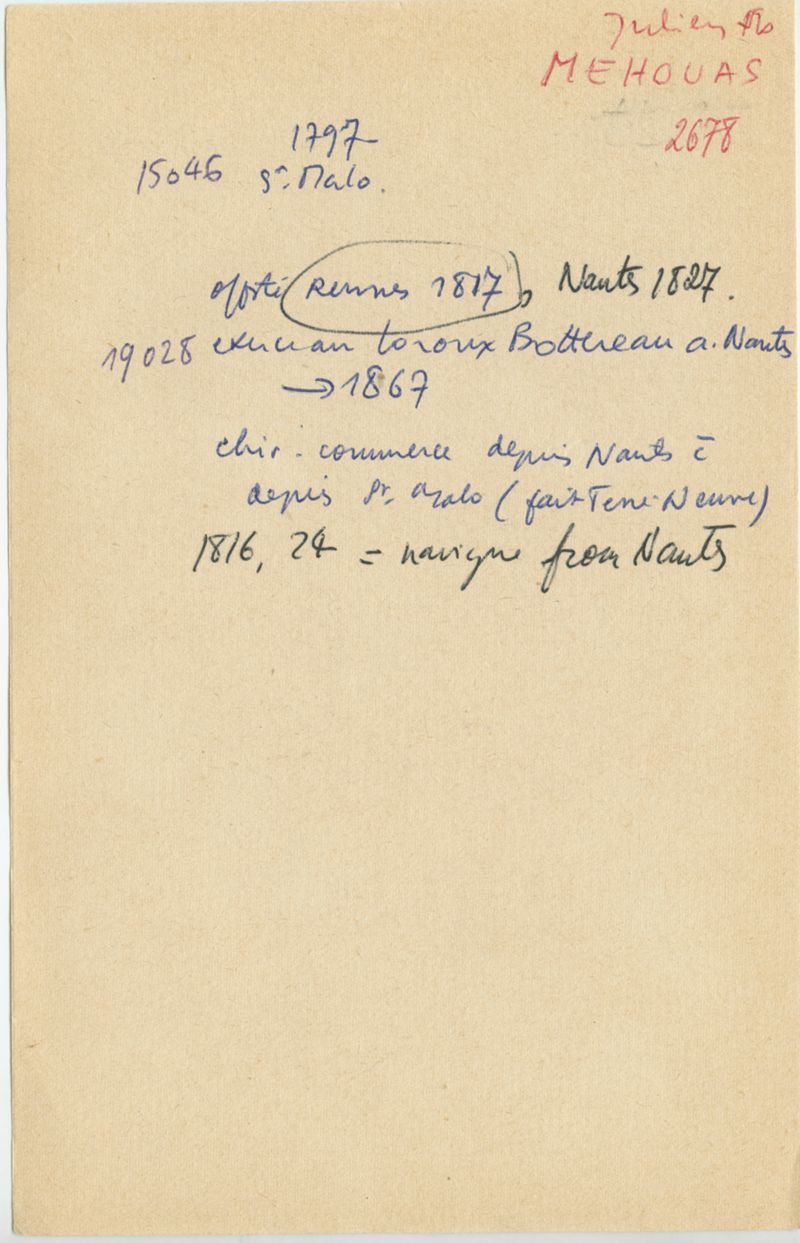 Julien
MEHOUAS
2678
1797
15046 St. Malo.
Rennes 1817, Nantes 1827.
19028 Bottereau a. Nantes
→ 1867
chir. commerce depuis Nantes
depuis St. Malo (fait Terre-Neuve)
1816, 24 = navigue from Nantes